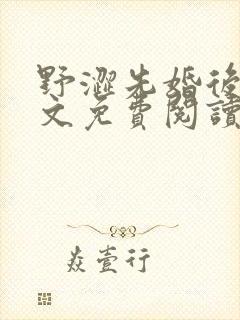 野澀先婚後
文免費閱讀
焱壹行